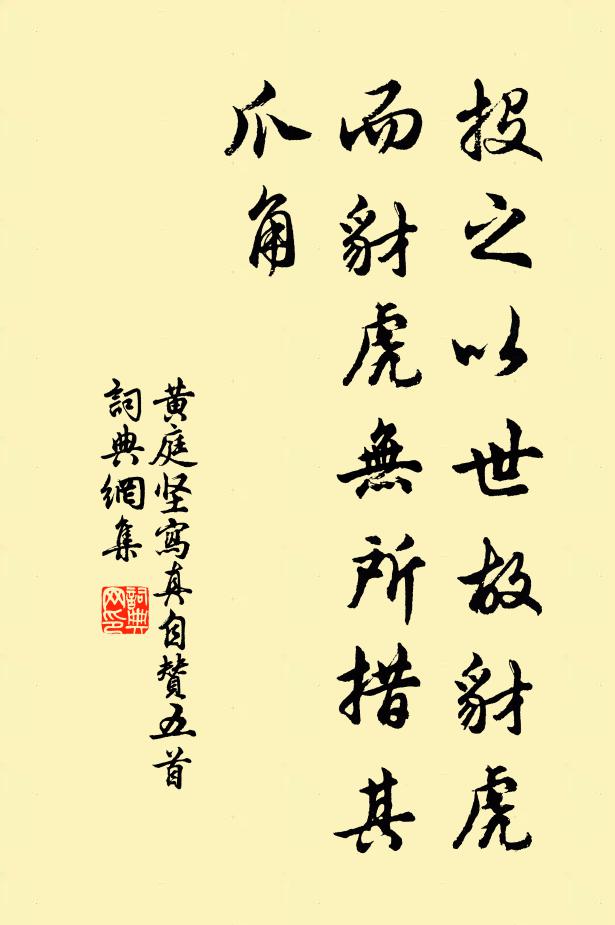 投之以世故豺虎
而豺虎無所措其
爪角
黄庭坚寫真自贊五首
詞典網集
詞典
网印